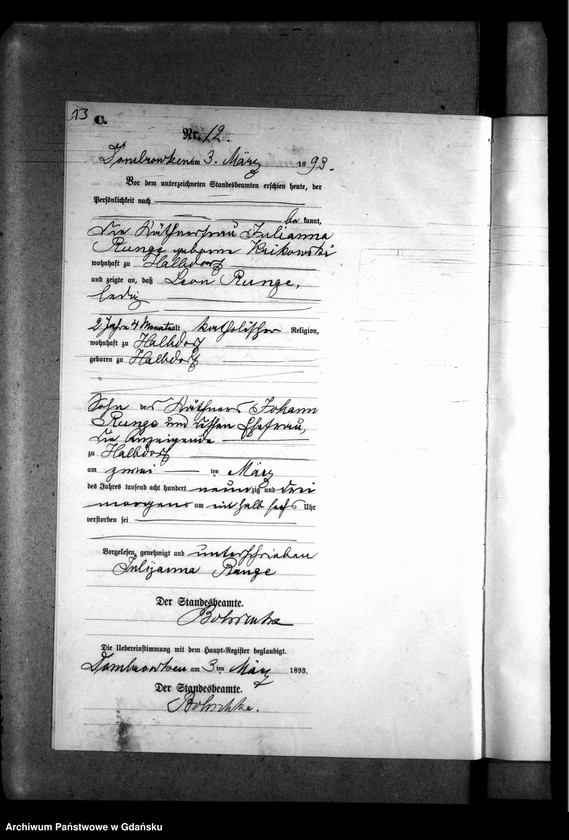 13
C.
Nr. 12.
Dombrowken am 3. März 1893.
Vor dem unterzeichneten Standesbeamten erschien heute, der
Persönlichkeit nach
be kannt,
die Käthnerfrau Julianna
Runge geborne Krikowski
wohnhaft zu Halbdorf
und zeigte an, daß Leon Runge,
ledig
2 Jahre 4 Monate alt katholischer Religion,
wohnhaft zu Halbdorf
geboren zu Halbdorf
Sohn des Käthners Johann
Runge und dessen Ehefrau,
die Anzeigende
zu Halbdorf
am zwei ten März
des Jahres tausend acht hundert neunzig und drei
morgens um ein halb sechs Uhr
verstorben sei
Vorgelesen, genehmigt und unterschrieben
Julijanna Runge
Der Standesbeamte.
Die Uebereinstimmung mit dem Haupt-Register beglaubigt.
Dombrowken am 3 ten März 1893.
Der Standesbeamte.
Archiwum Państwowe w Gdańsku